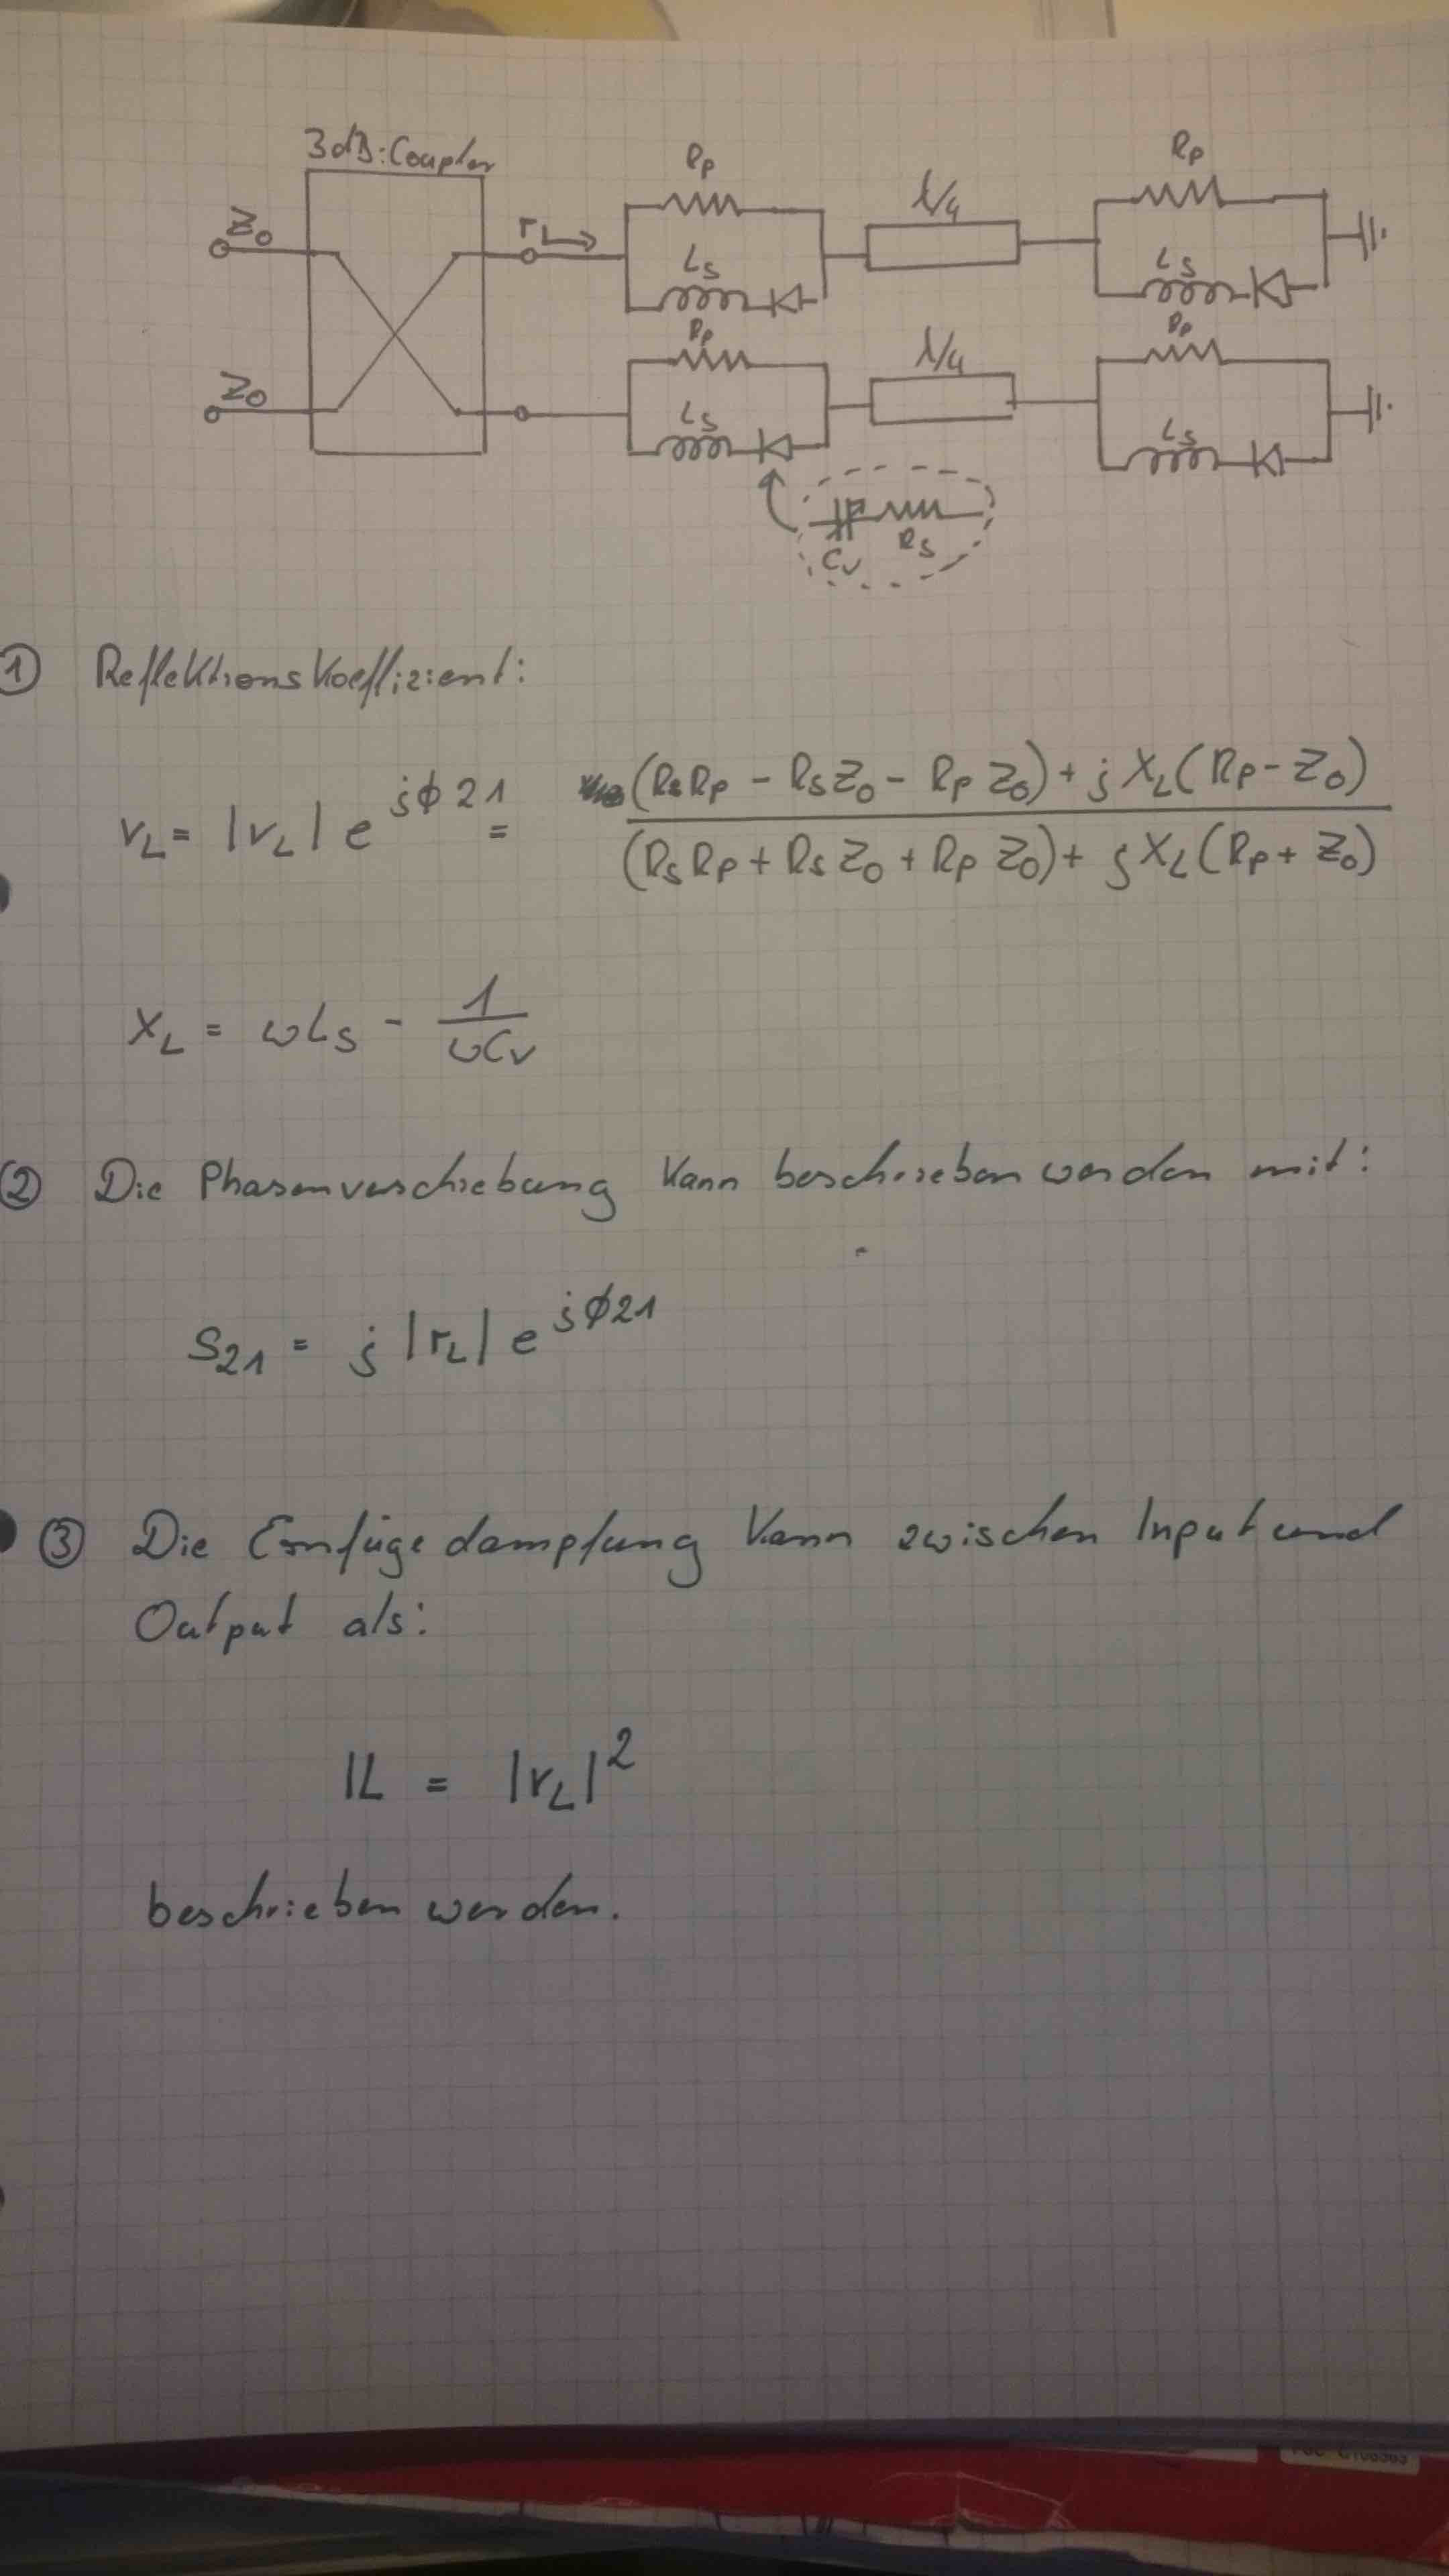 3dB:Coupler
Z₀
Z₀
r_L
Rp
Ls
λ/4
Rp
Ls
Rp
Ls
λ/4
Rp
Ls
Cv Rs
① Reflektionskoeffizient:
r_L = |r_L| e^{jϕ21} = ((RsRp - RsZ₀ - RpZ₀) + jX_L(Rp - Z₀)) / ((RsRp + RsZ₀ + RpZ₀) + jX_L(Rp + Z₀))
X_L = ωLs - 1/(ωCv)
② Die Phasenverschiebung kann beschrieben werden mit:
S₂₁ = j |r_L| e^{jϕ21}
③ Die Einfügedämpfung kann zwischen Input und
Output als:
IL = |r_L|²
beschrieben werden.